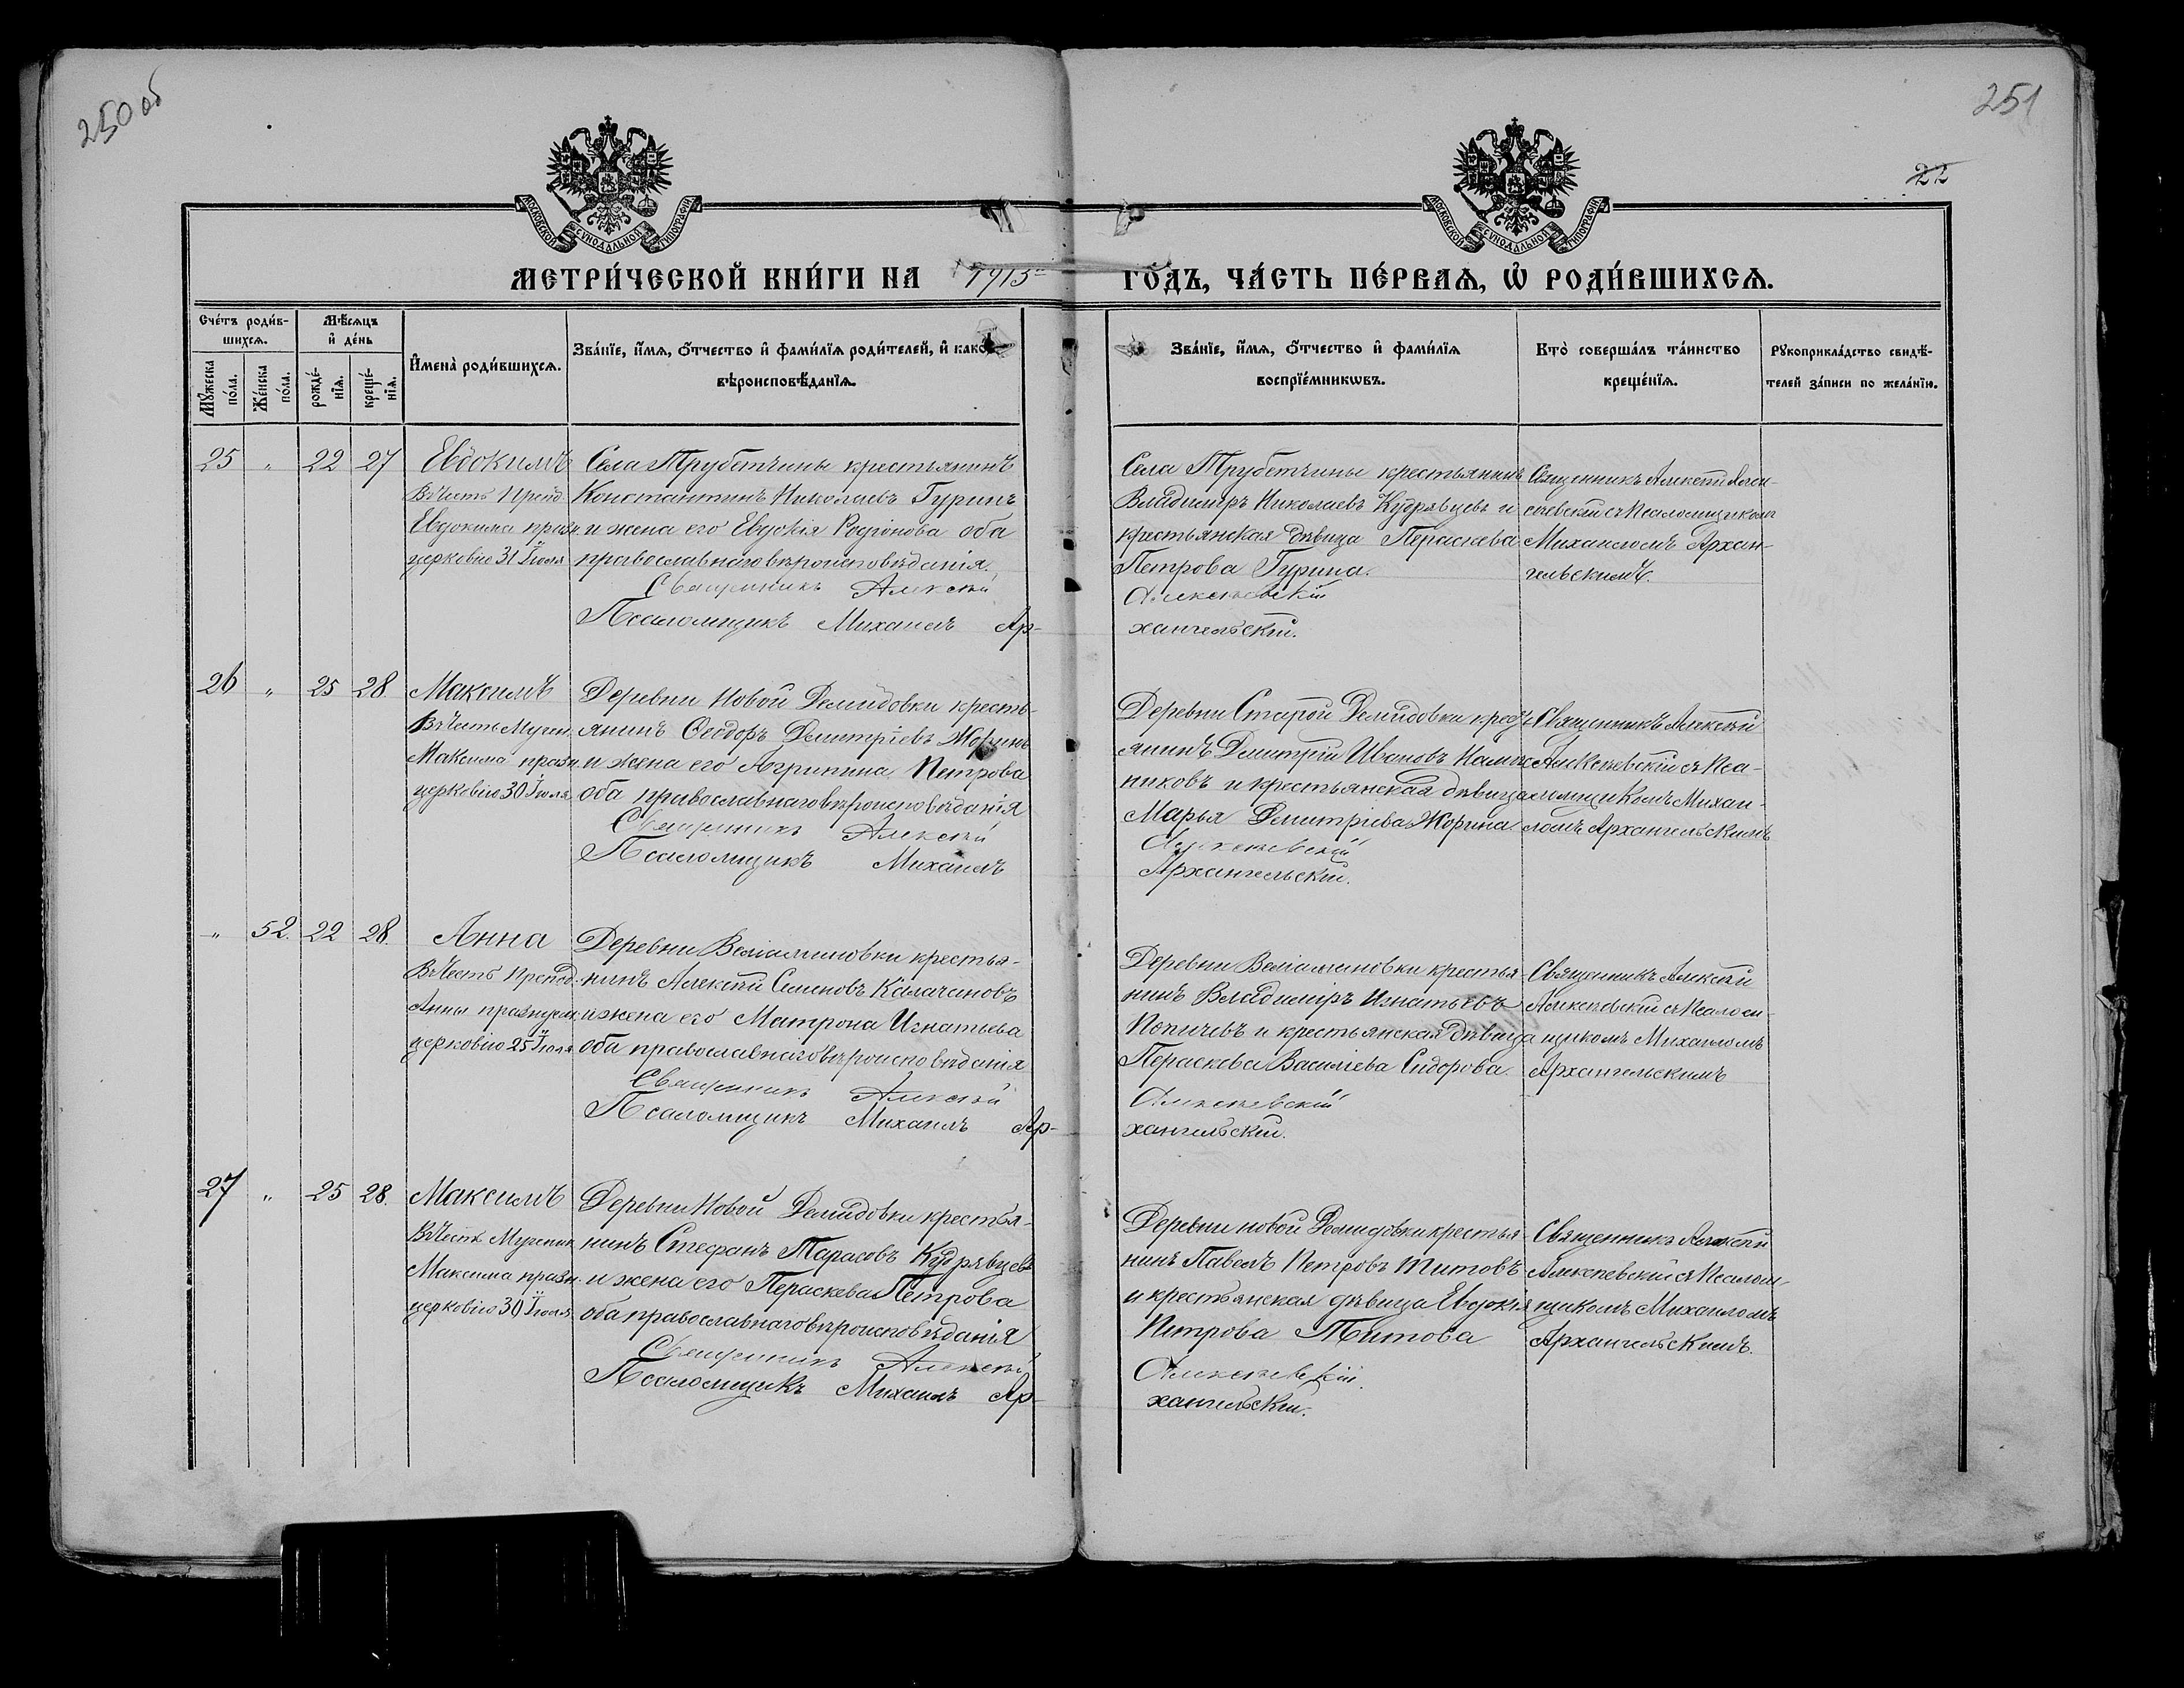 250 об
251
22
МОСКОВСКОЙ СѴНОДАЛЬНОЙ ТИПОГРАФІИ
МОСКОВСКОЙ СѴНОДАЛЬНОЙ ТИПОГРАФІИ
МЕТРИ́ЧЕСКОЙ КНИ́ГИ НА 1913 ГО́ДЪ, ЧА́СТЬ ПЕ́РВАЯ, Ѡ҆ РОДИ́ВШИХСЯ.
Сче́тъ роди́в-
шихся.
Мѣ́сяцъ
и҆ де́нь
Мꙋ́жеска
по́ла.
Же́нска
по́ла.
рожде́-
нїя.
креще́-
нїя.
И҆мена̀ роди́вшихся.
Зва́нїе, и҆́мя, ѻ҆́тчество и҆ фами́лїя роди́телей, и҆ како́г
вѣроисповѣ́данїя.
Зва́нїе, и҆́мя, ѻ҆́тчество и҆ фами́лїя
воспрїе́мникѡвъ.
Кто̀ соверша́лъ та́инство
креще́нїя.
Рꙋкоприкла́дство свидѣ́-
телей за́писи по жела́нїю.
25 " 22 27 Евдокимъ
Въ честь Препод.
Евдокима празн.
церковію 31 Іюля
Села Трубетчины крестьянинъ
Константинъ Николаевъ Гуринъ
и жена его Евдокія Родіонова оба
православнаго вѣроисповѣданія.
Священникъ Алексѣй
Псаломщикъ Михаилъ Ар-
Села Трубетчины крестьянинъ
Владиміръ Николаевъ Кудрявцевъ и
крестьянская дѣвица Пераскева
Петрова Гурина.
Алексѣевскій
хангельскій.
Священникъ Алексѣй Алек-
сѣевскій съ Псаломщикомъ
Михаиломъ Архан-
гельскимъ.
26 " 25 28 Максимъ
Въ честь Мучен.
Максима празн.
церковію 30 Іюля
Деревни Новой Демидовки кресть-
янинъ Ѳеодоръ Димитріевъ Жоринъ
и жена его Агрипина Петрова
оба православнаго вѣроисповѣданія
Священникъ Алексѣй
Псаломщикъ Михаилъ
Деревни Старой Демидовки крест-
янинъ Димитрій Ивановъ
никовъ и крестьянская дѣвица
Марья Димитріева Жорина
Алексѣевскій
Архангельскій.
Священникъ Алексѣй
Алексѣевскій съ Пса-
ломщикомъ Михаи-
ломъ Архангельскимъ
" 52. 22 28. Анна
Въ честь Препод.
Анны празнуем.
церковію 25 Іюля
Деревни Веліаминовки крестья-
нинъ Алексѣй Семеновъ Калачановъ
и жена его Матрона Игнатьева
оба православнаго вѣроисповѣданія
Священникъ Алексѣй
Псаломщикъ Михаилъ Ар-
Деревни Веліаминовки крестья-
нинъ Владиміръ Игнатьевъ
и крестьянская дѣвица
Пераскева Василіева Сидорова.
Алексѣевскій
хангельскій.
Священникъ Алексѣй
Алексѣевскій съ Псалом-
щикомъ Михаиломъ
Архангельскимъ
27 " 25 28. Максимъ
Въ честь Мученик.
Максима празн.
церковію 30 Іюля
Деревни Новой Демидовки крестья-
нинъ Стефанъ Тарасовъ Кудрявцевъ
и жена его Пераскева Петрова
оба православнаго вѣроисповѣданія
Священникъ Алексѣй
Псаломщикъ Михаилъ Ар-
Деревни новой Демидовки крестья-
нинъ Павелъ Петровъ Титовъ
и крестьянская дѣвица Евдокія
Петрова Титова
Алексѣевскій.
хангельскій.
Священникъ Алексѣй
Алексѣевскій съ Псалом-
щикомъ Михаиломъ
Архангельскимъ.